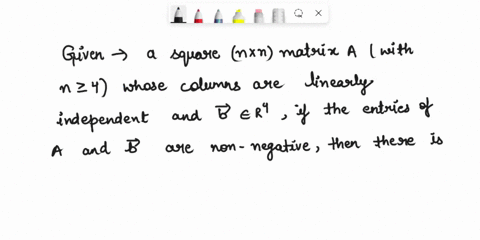 Given → a square (n×n) matrix A (with
n ≥ 4) whose columns are linearly
independent and B⃗ ∈ R⁴, if the entries of
A and B⃗ are non-negative, then there is